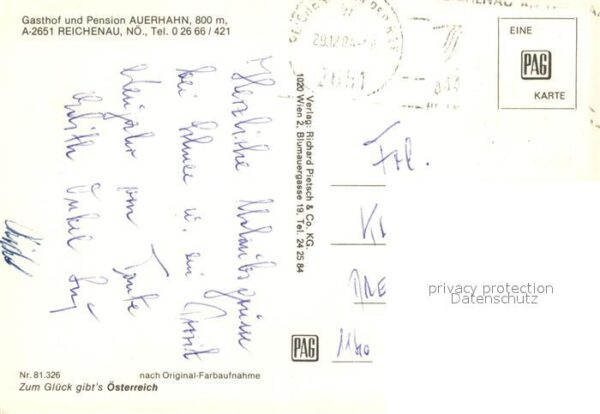 Gasthof und Pension AUERHAHN, 800 m,
A-2651 REICHENAU, NÖ., Tel. 0 26 66 / 421
Herzliche Urlaubsgrüße
bei Schnee u. ein Prosit
Neujahr von Tante
Edith Onkel
Verlag: Richard Pietsch & Co. KG.
1020 Wien 2, Blumauergasse 19, Tel. 24 25 84
29.12.85
2651
EINE
PAG
KARTE
Frl.
privacy protection
Datenschutz
PAG
Nr. 81.326
nach Original-Farbaufnahme
Zum Glück gibt's Österreich